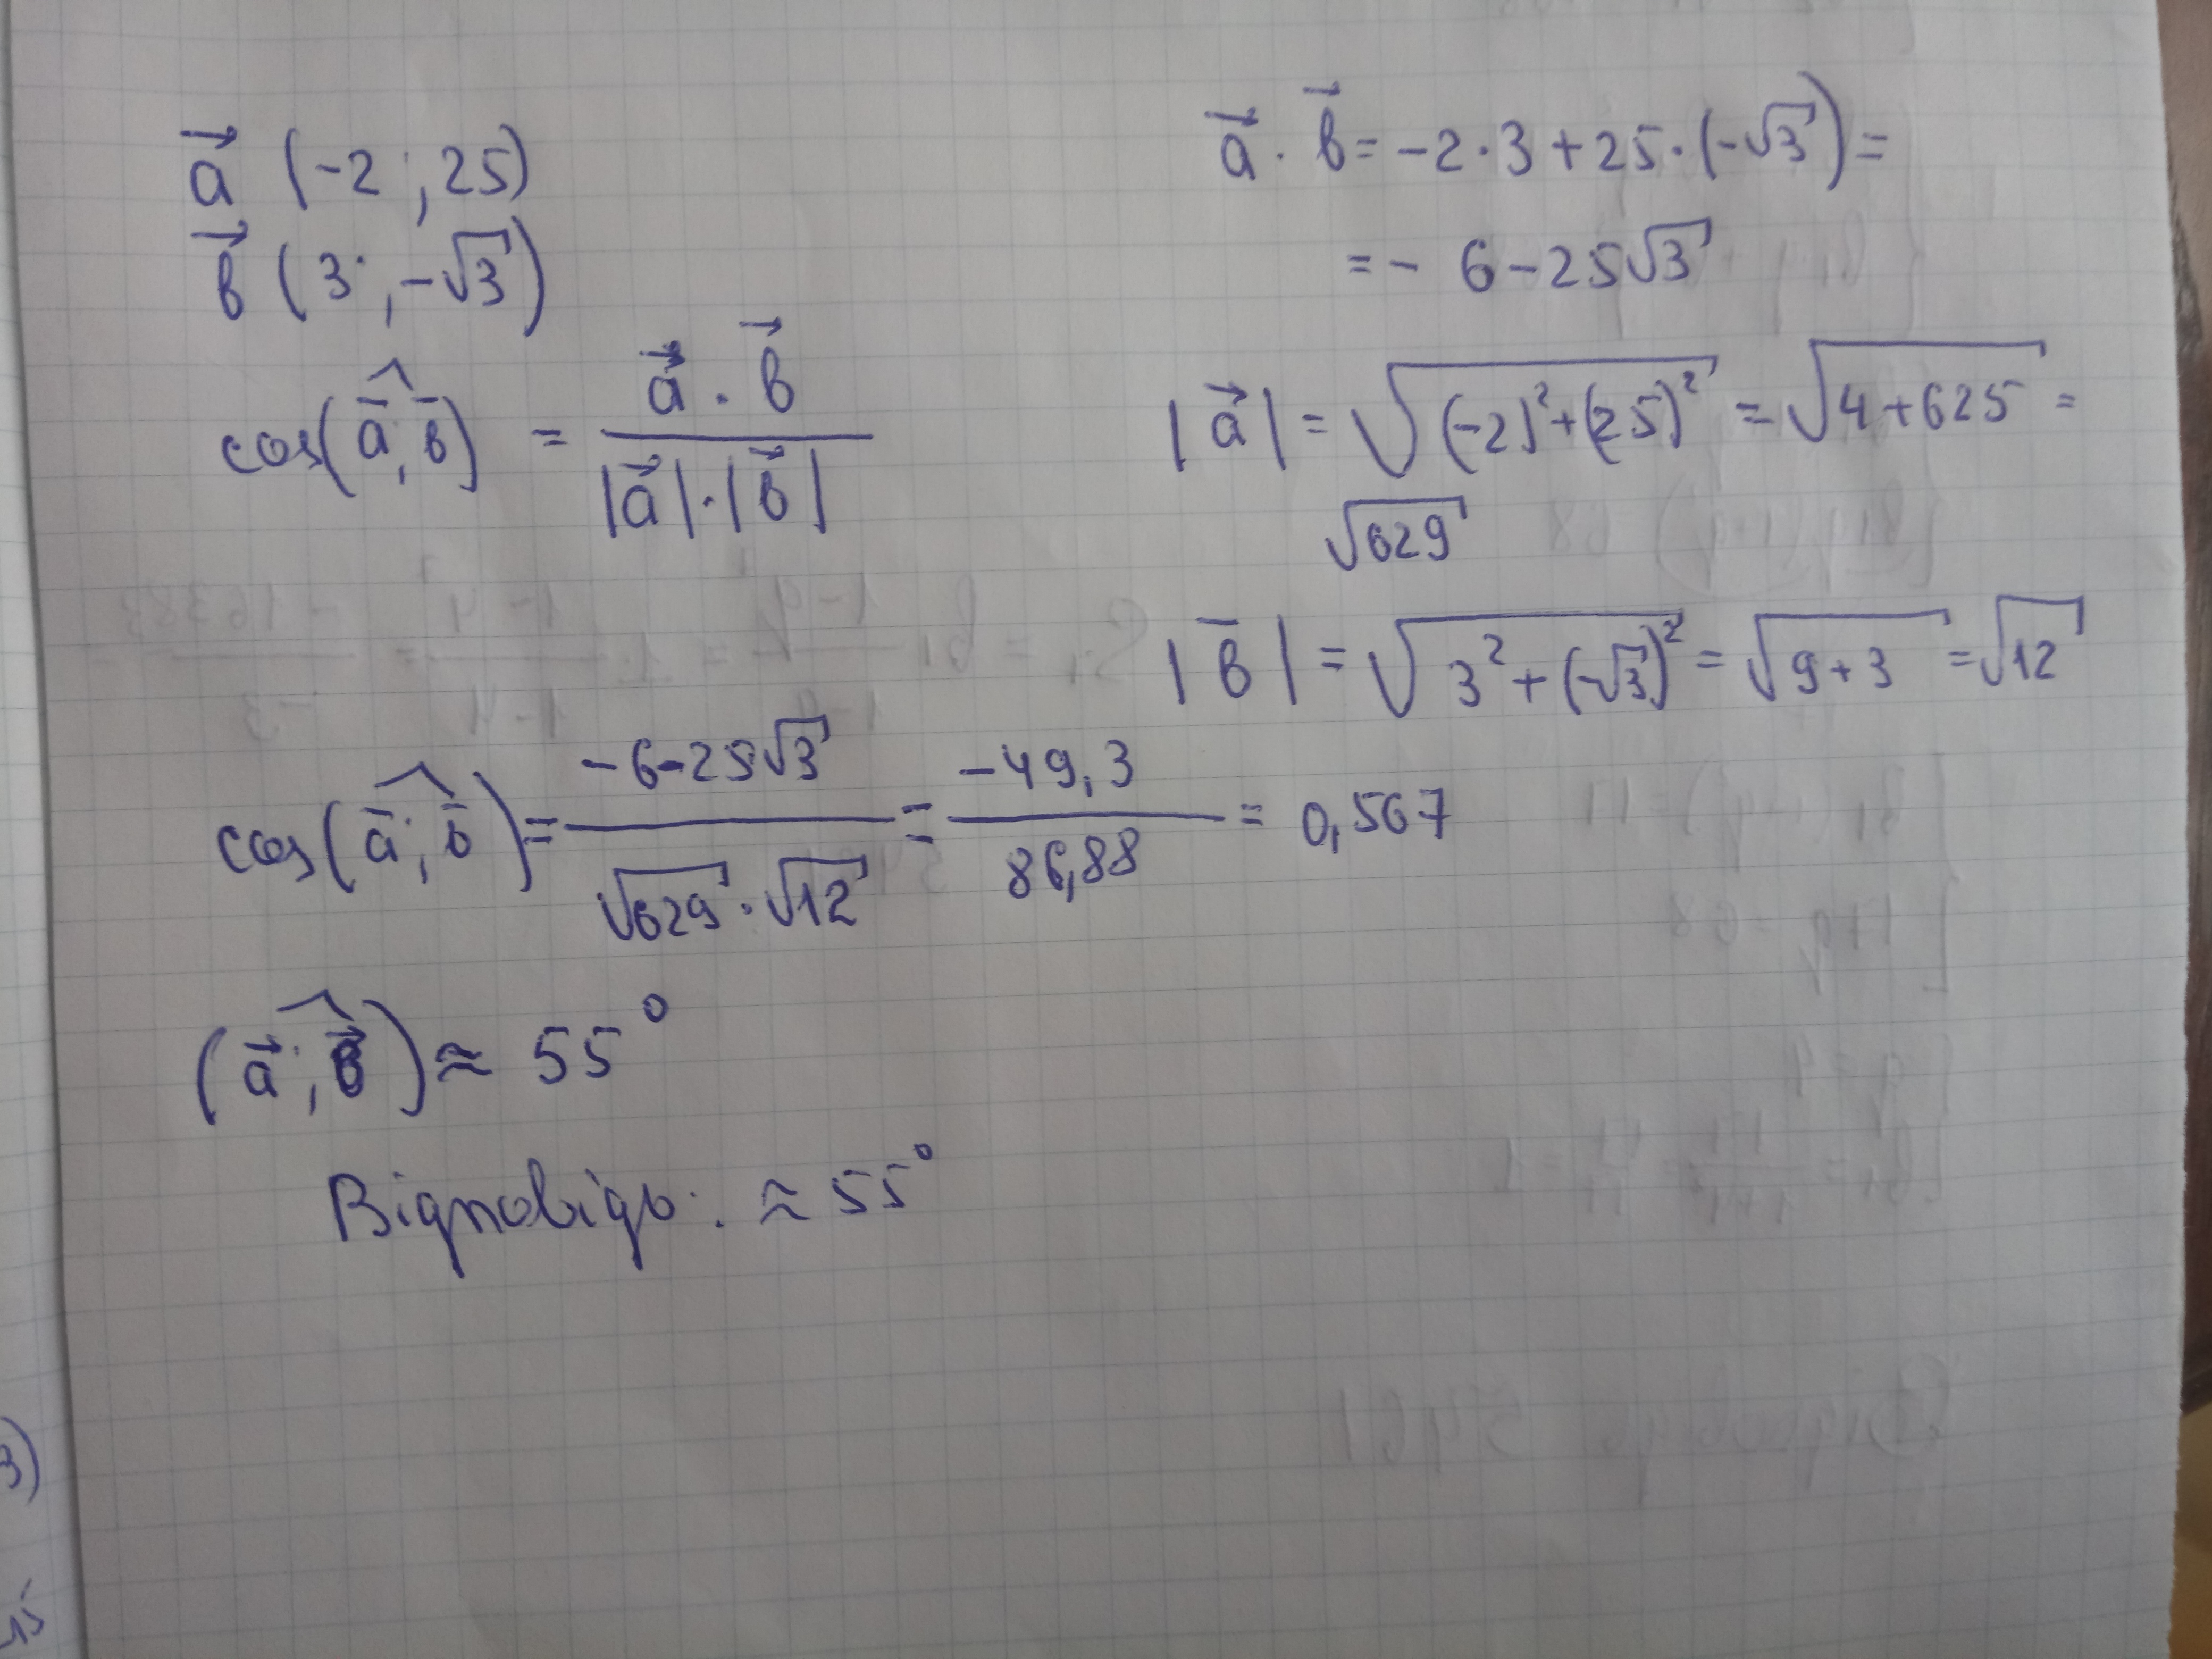 a⃗ (-2; 25)
b⃗ (3; -√3)
cos(a̅; b̅) = a⃗ · b⃗ / |a⃗|·|b⃗|
a⃗ · b⃗ = -2·3+25·(-√3) =
= - 6-25√3
|a⃗| = √((-2)²+(25)²) = √(4+625) =
√629
|b̅| = √(3²+(-√3)²) = √(9+3) = √12
cos(a̅; b̅) = -6-25√3 / √629 · √12 = -49,3 / 86,88 = 0,567
(a⃗; b⃗) ≈ 55°
Відповідь: ≈ 55°
3)